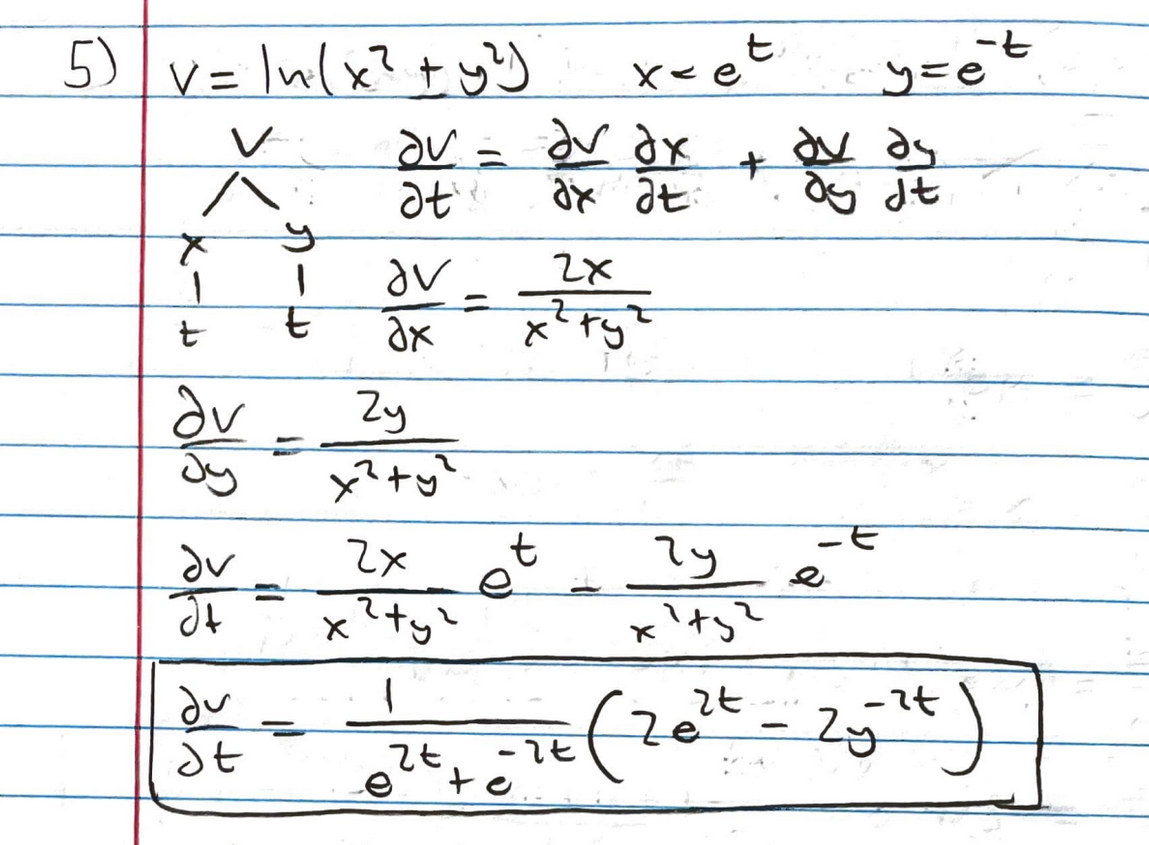 5) v = ln(x² + y²) x = e^t y = e^-t
v ∂v/∂t = ∂v/∂x ∂x/∂t + ∂v/∂y ∂y/∂t
x y
t t ∂v/∂x = 2x/(x²+y²)
∂v/∂y = 2y/(x²+y²)
∂v/∂t = 2x/(x²+y²) e^t - 2y/(x²+y²) e^-t
∂v/∂t = 1/(e^2t + e^-2t) (2e^2t - 2y^-2t)